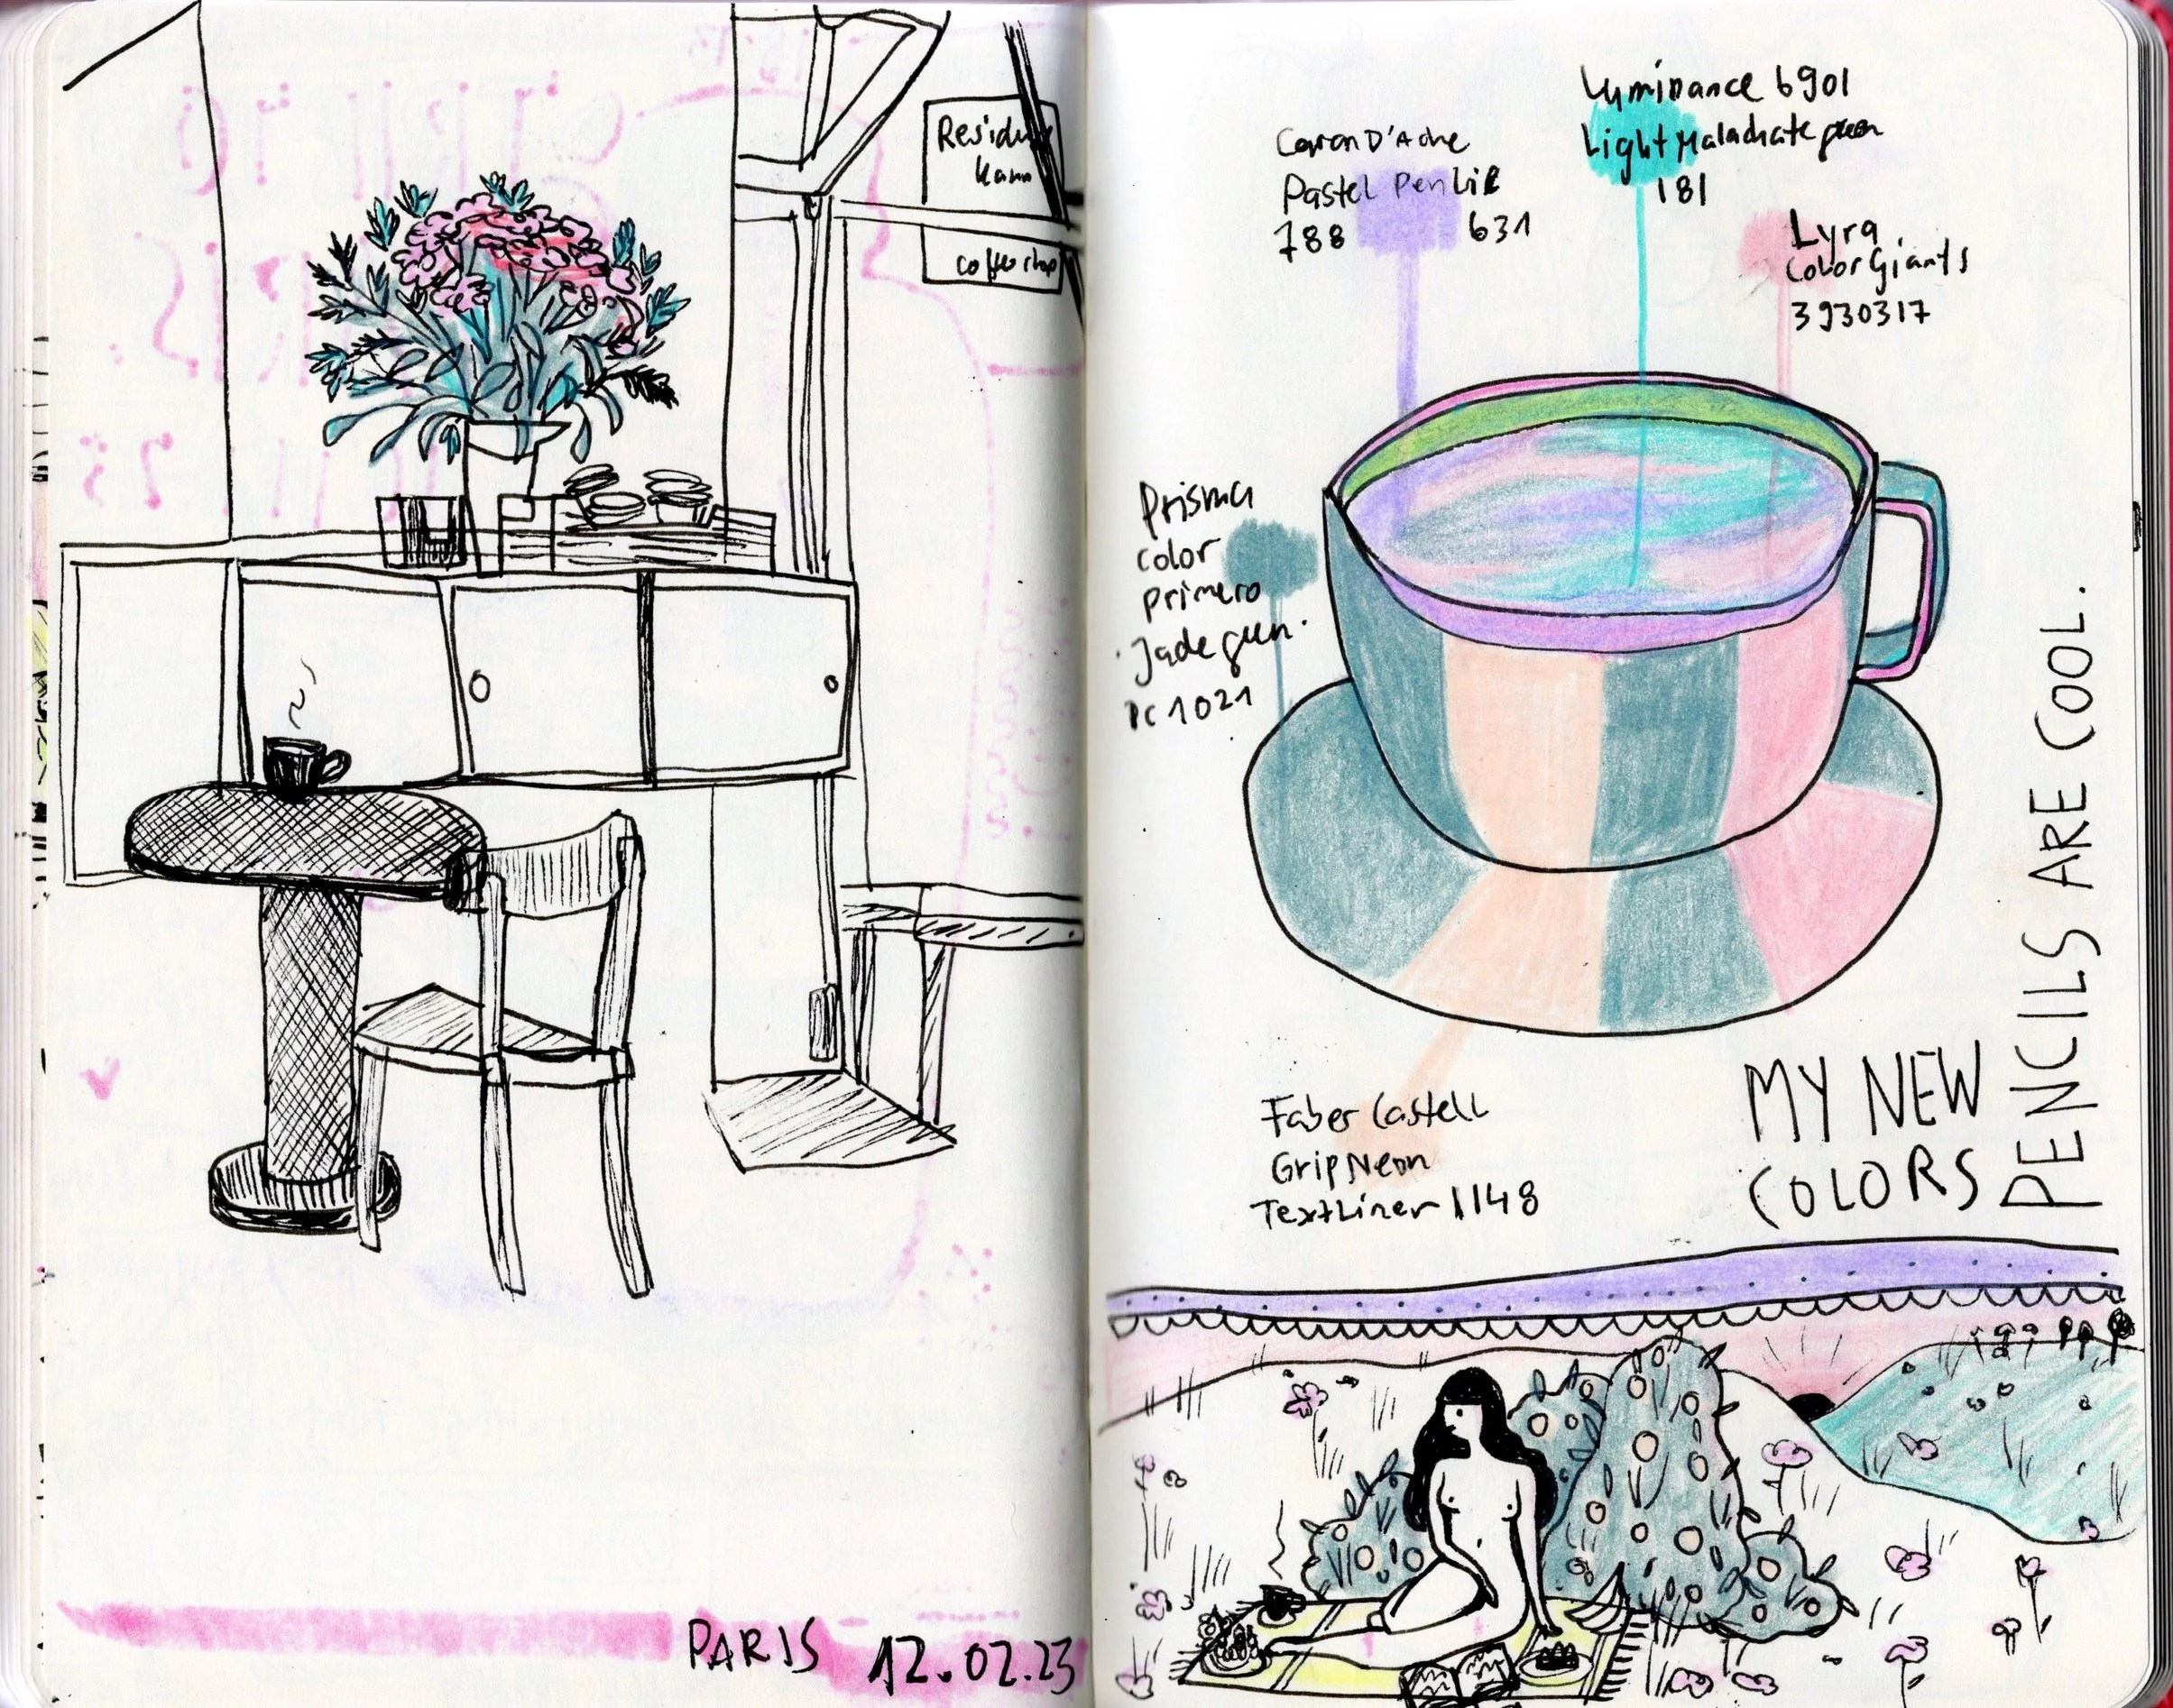 coffee shop
PARIS 12.02.23
Luminance 6901
Light Malachate green
181
Caran D'Ache
Pastel Pencil
788 631
Lyra
Color Giants
3930317
Prisma
color
primero
Jade green.
PC 1021
Faber Castell
Grip Neon
TextLiner 1148
MY NEW
COLORS
PENCILS ARE COOL.